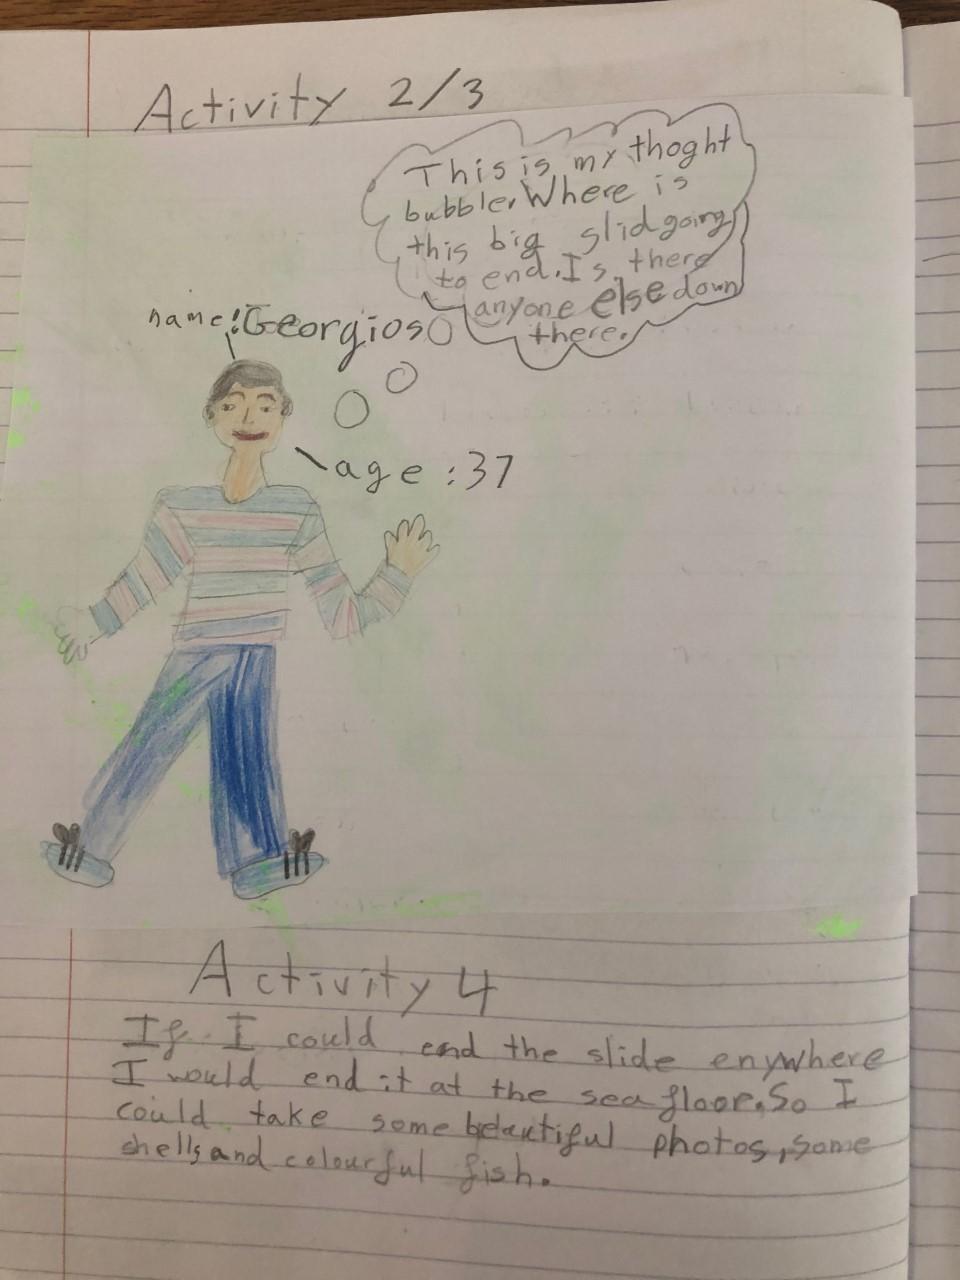 Activity 2/3
This is my thoght
bubble. Where is
this big slid going
to end. Is there
anyone else down
there.
name: Georgios
age : 37
Activity 4
If I could end the slide enywhere
I would end it at the sea floor. So I
could take some beautiful photos, some
shells and colourful fish.